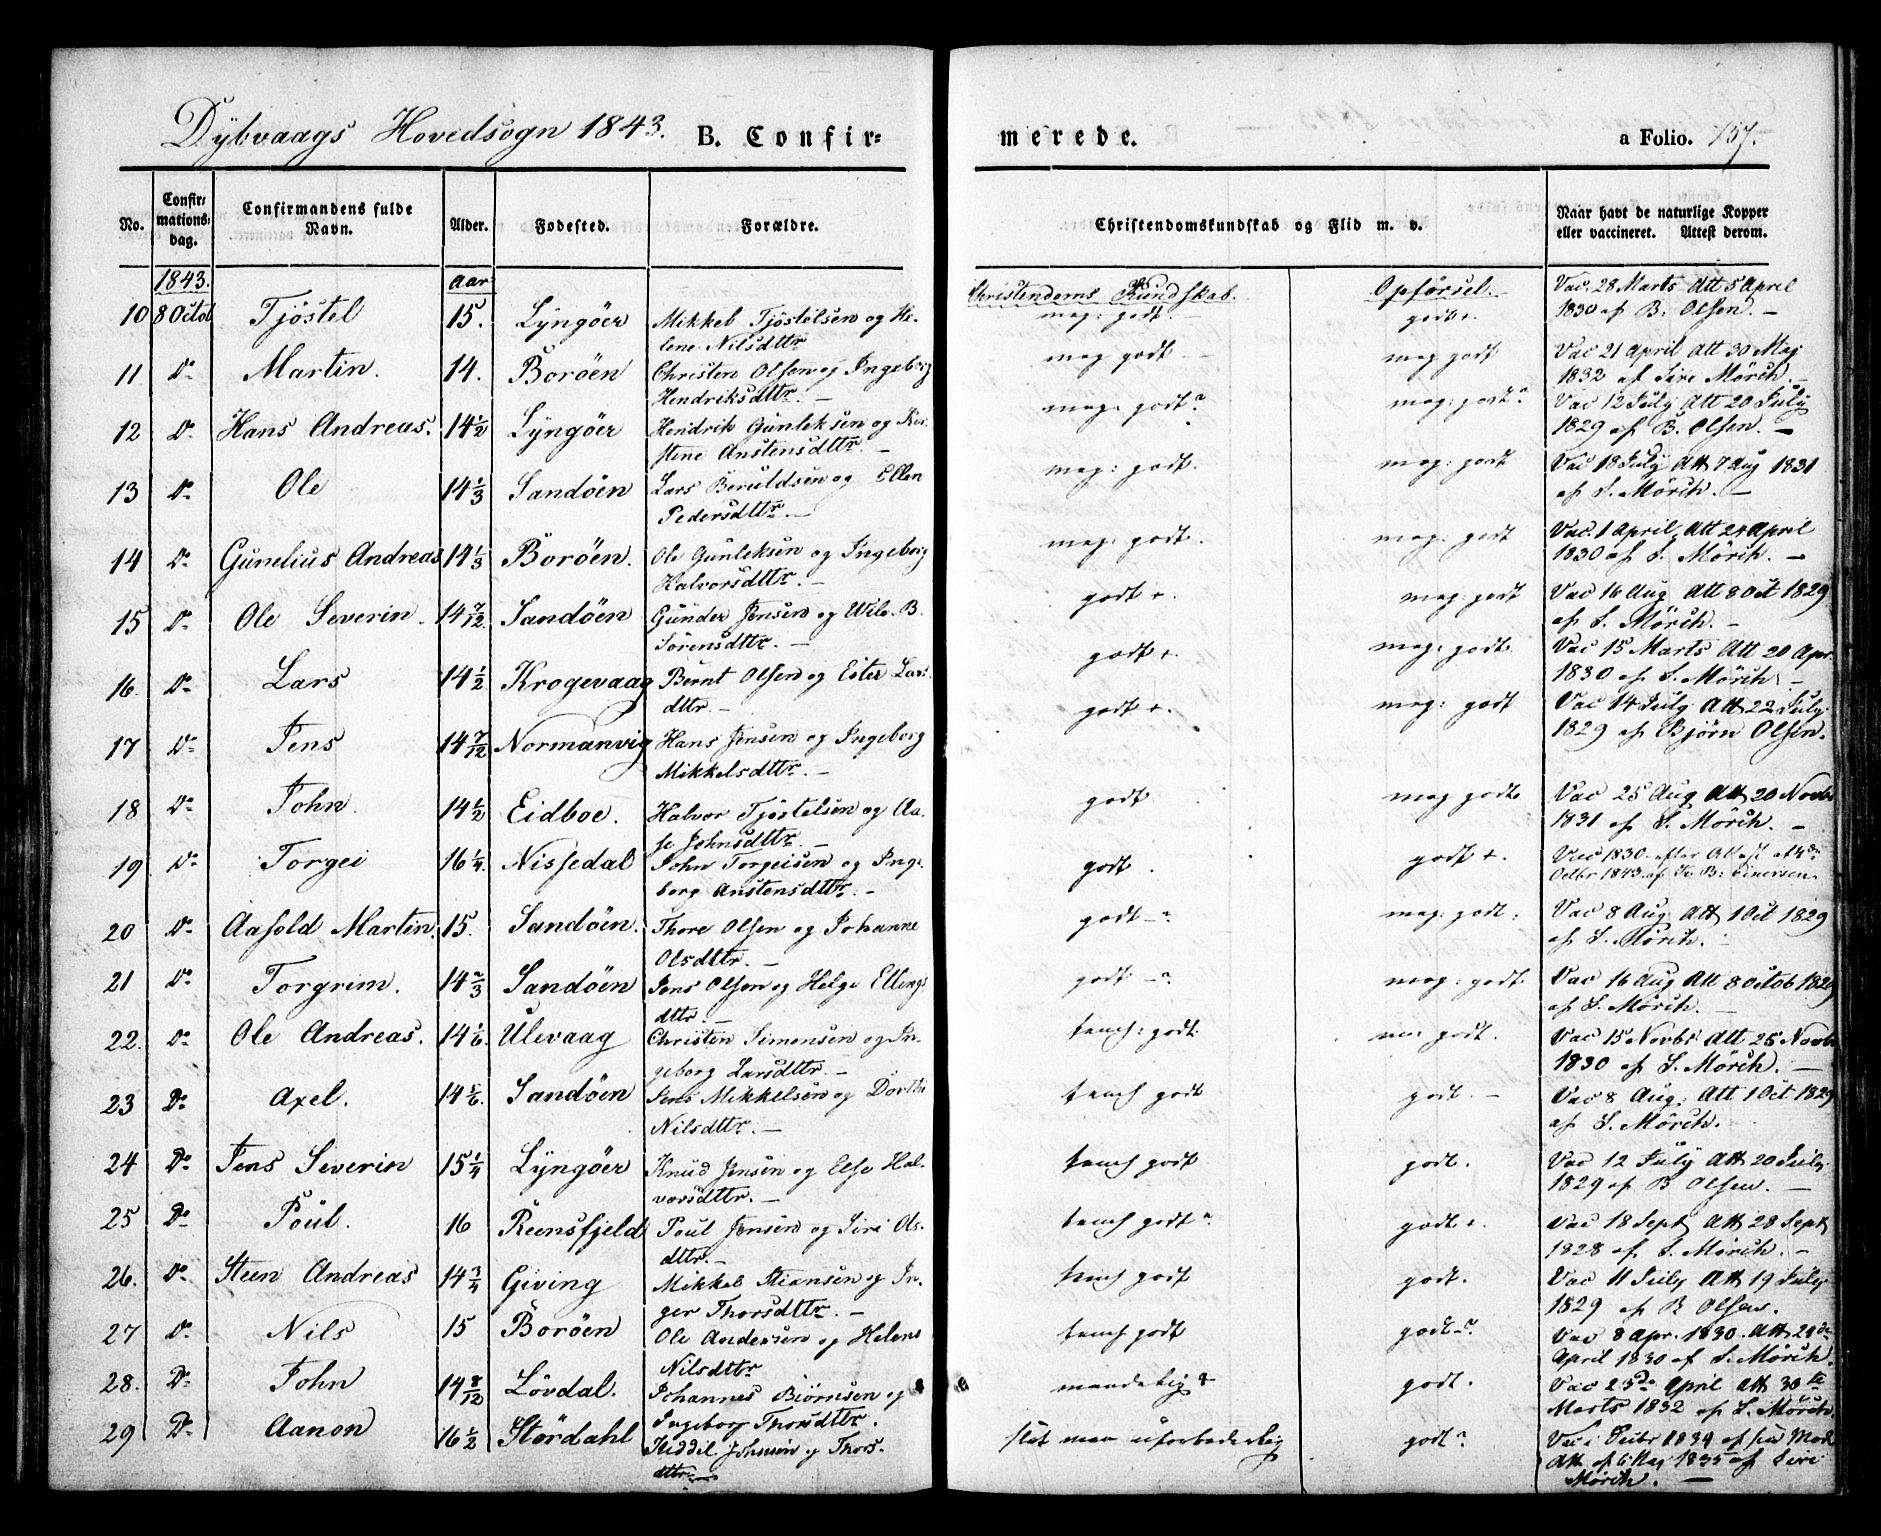 Dybvaags Hovedsogn 1843. B. Confir=
merede. a Folio. 157.
No. Confir=mations=dag. Confirmandens fulde Navn. Alder. Fødested. Forældre. Christendomskundskab og Flid m. v. Naar havt de naturlige Kopper eller vaccineret. Attest derom.
1843. Aar Christendoms Kundskab. Opførsel.
10 8 Octob Tjöstel 15. Lyngöer Mikkel Tjöstelsen og Helene Nilsdttr mag: godt. godt+. Vac. 28 Marts Att 5 April 1830 af B. Olsen. —
11 Do Martin. 14. Boröen Christen Olsen og Ingeborg Hendriksdttr. — mag godt — mag godt Vac 21 April Att 30 Maj 1832 af Sire Mörch. —
12 Do Hans Andreas. 14 1/2 Lyngöer Hendrik Gunleksen og Kirstene Anstensdttr. — mag: godt? mag: godt? Vac 12 July Att 20 July 1829 af B. Olsen. —
13 Do Ole 14 1/3 Sandöen Lars Beruldsen og Ellen Pedersdttr. — mag: godt. mag: godt Vac 18 July Att 7 Aug 1831 af S. Mörch. —
14 Do Gunelius Andreas 14 1/3 Boröen. Ole Gunleksen og Ingeborg Halvorsdttr. — mag: godt. mag: godt Vac. 1 April Att 24 April 1830 af S. Mörch. —
15 Do Ole Severin. 14 7/12 Sandöen Gunder Jensen og Wile. B. Sörensdttr. — godt +. mag: godt Vac 16 Aug Att 8 Oct 1829 af S. Mörch. —
16. Do Lars 14 1/2 Krogevaag Bernt Olsen og Ester Larsdttr. — godt +. mag: godt. Vac 15 Marts Att 20 Apr. 1830 af S. Mörch. —
17 Do Jens 14 7/12 Normanvig Hans Jensen og Ingeborg Mikkelsdttr. — godt +. mag: godt Vac 14 July Att 22 July 1829 af Bjørn Olsen.
18 Do John. 14 1/2 Eidboe. Halvor Tjöstelsen og Aase Johnsdttr. — godt mag godt Vac 25 Aug Att 20 Novbr 1831 af S. Mörch. —
19 Do Torgei 16 1/4 Nissedal John Torgeisen og Ingeborg Anstensdttr. — godt. godt +. Vac 1830 efter Attest af 4de Octbr 1843 af B: Einersen
20 Do Aasold Martin. 15. Sandöen. Thore Olsen og Johanne Olsdttr. — godt —? mag: godt: Vac 8 Aug Att 1 Oct 1829 af S. Mörch. —
21 Do Torgrim. 14 2/3 Sandöen Jens Olsen og Helge Ellingsdttr — godt —? mag: godt Vac 16 Aug Att 8 Octob 1829 af S. Mörch. —
22. Do Ole Andreas. 14 1/6 Ulevaag Christen Simensen og Ingeborg Larsdttr. — temel: godt. godt. Vac 15 Novbr Att 25 Novbr 1830 af S. Mörch. —
23 Do Axel. 14 1/6. Sandöen Jens Mikkelsen og Dorthe Nilsdttr. — temel godt godt. — Vac 8 Aug: Att 1 Oct 1829 af S. Mörch.
24 Do Jens Severin 15 1/4 Lyngöer Knud Jensen og Else Halvorsdttr. — temel godt godt. Vac 12 July Att 20 July. 1829 af B Olsen. —
25 Do Poul. 16 Reensfjeld Poul Jensen og Siri Olsdttr. — temel godt? godt +. Vac 18 Sept Att 28 Sept 1828 af S. Mörch. —
26. Do Steen Andreas 14 3/4 Giving Mikkel Stiansen og Inger Thorsdttr. — temel godt godt. Vac 11 July Att 19 July 1829 af B Olsen.
27 Do Nils 15 Boröen Ole Andersen og Helene Nilsdttr temel godt godt—? Vac 8 Apr. 1830. Att 28de April 1830 af S. Mörch.
28. Do John 14 8/12 Lövdal. Johannes Biörnsen og Ingeborg Thorsdttr. maadelig + godt. Vac 23de April Att 30te Marts 1832 af S. Mörch.
29 Do Aanon 16 1/2 Stördahl Kiddel Johnsen og Thorsdttr — slet men uforbederlig godt? Vac i Septbr 1834 af Att af 6 Maj 1835 af Sire Mörch. —